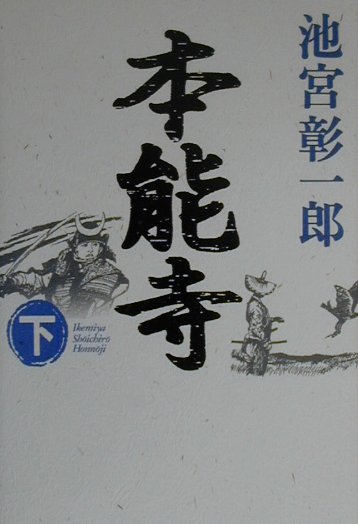 池宮彰一郎
本能寺
下
Ikemiya
Shōichirō
Honnōji